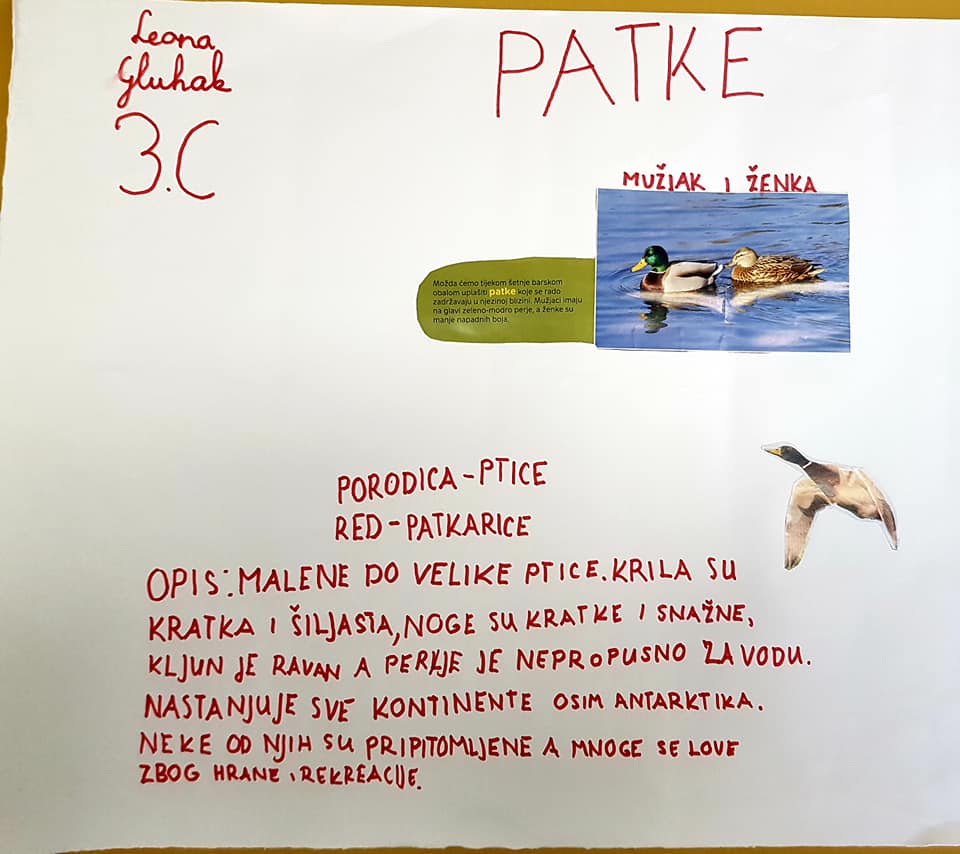 Leona
Gluhak
3.C
PATKE
MUŽJAK I ŽENKA
Možda ćemo tijekom šetnje barskom
obalom uplašiti patke koje se rado
zadržavaju u njezinoj blizini. Mužjaci imaju
na glavi zeleno-modro perje, a ženke su
manje napadnih boja.
PORODICA-PTICE
RED-PATKARICE
OPIS: MALENE DO VELIKE PTICE. KRILA SU
KRATKA I ŠILJASTA, NOGE SU KRATKE I SNAŽNE,
KLJUN JE RAVAN A PERJE JE NEPROPUSNO ZA VODU.
NASTANJUJE SVE KONTINENTE OSIM ANTARKTIKA.
NEKE OD NJIH SU PRIPITOMLJENE A MNOGE SE LOVE
ZBOG HRANE I REKREACIJE.